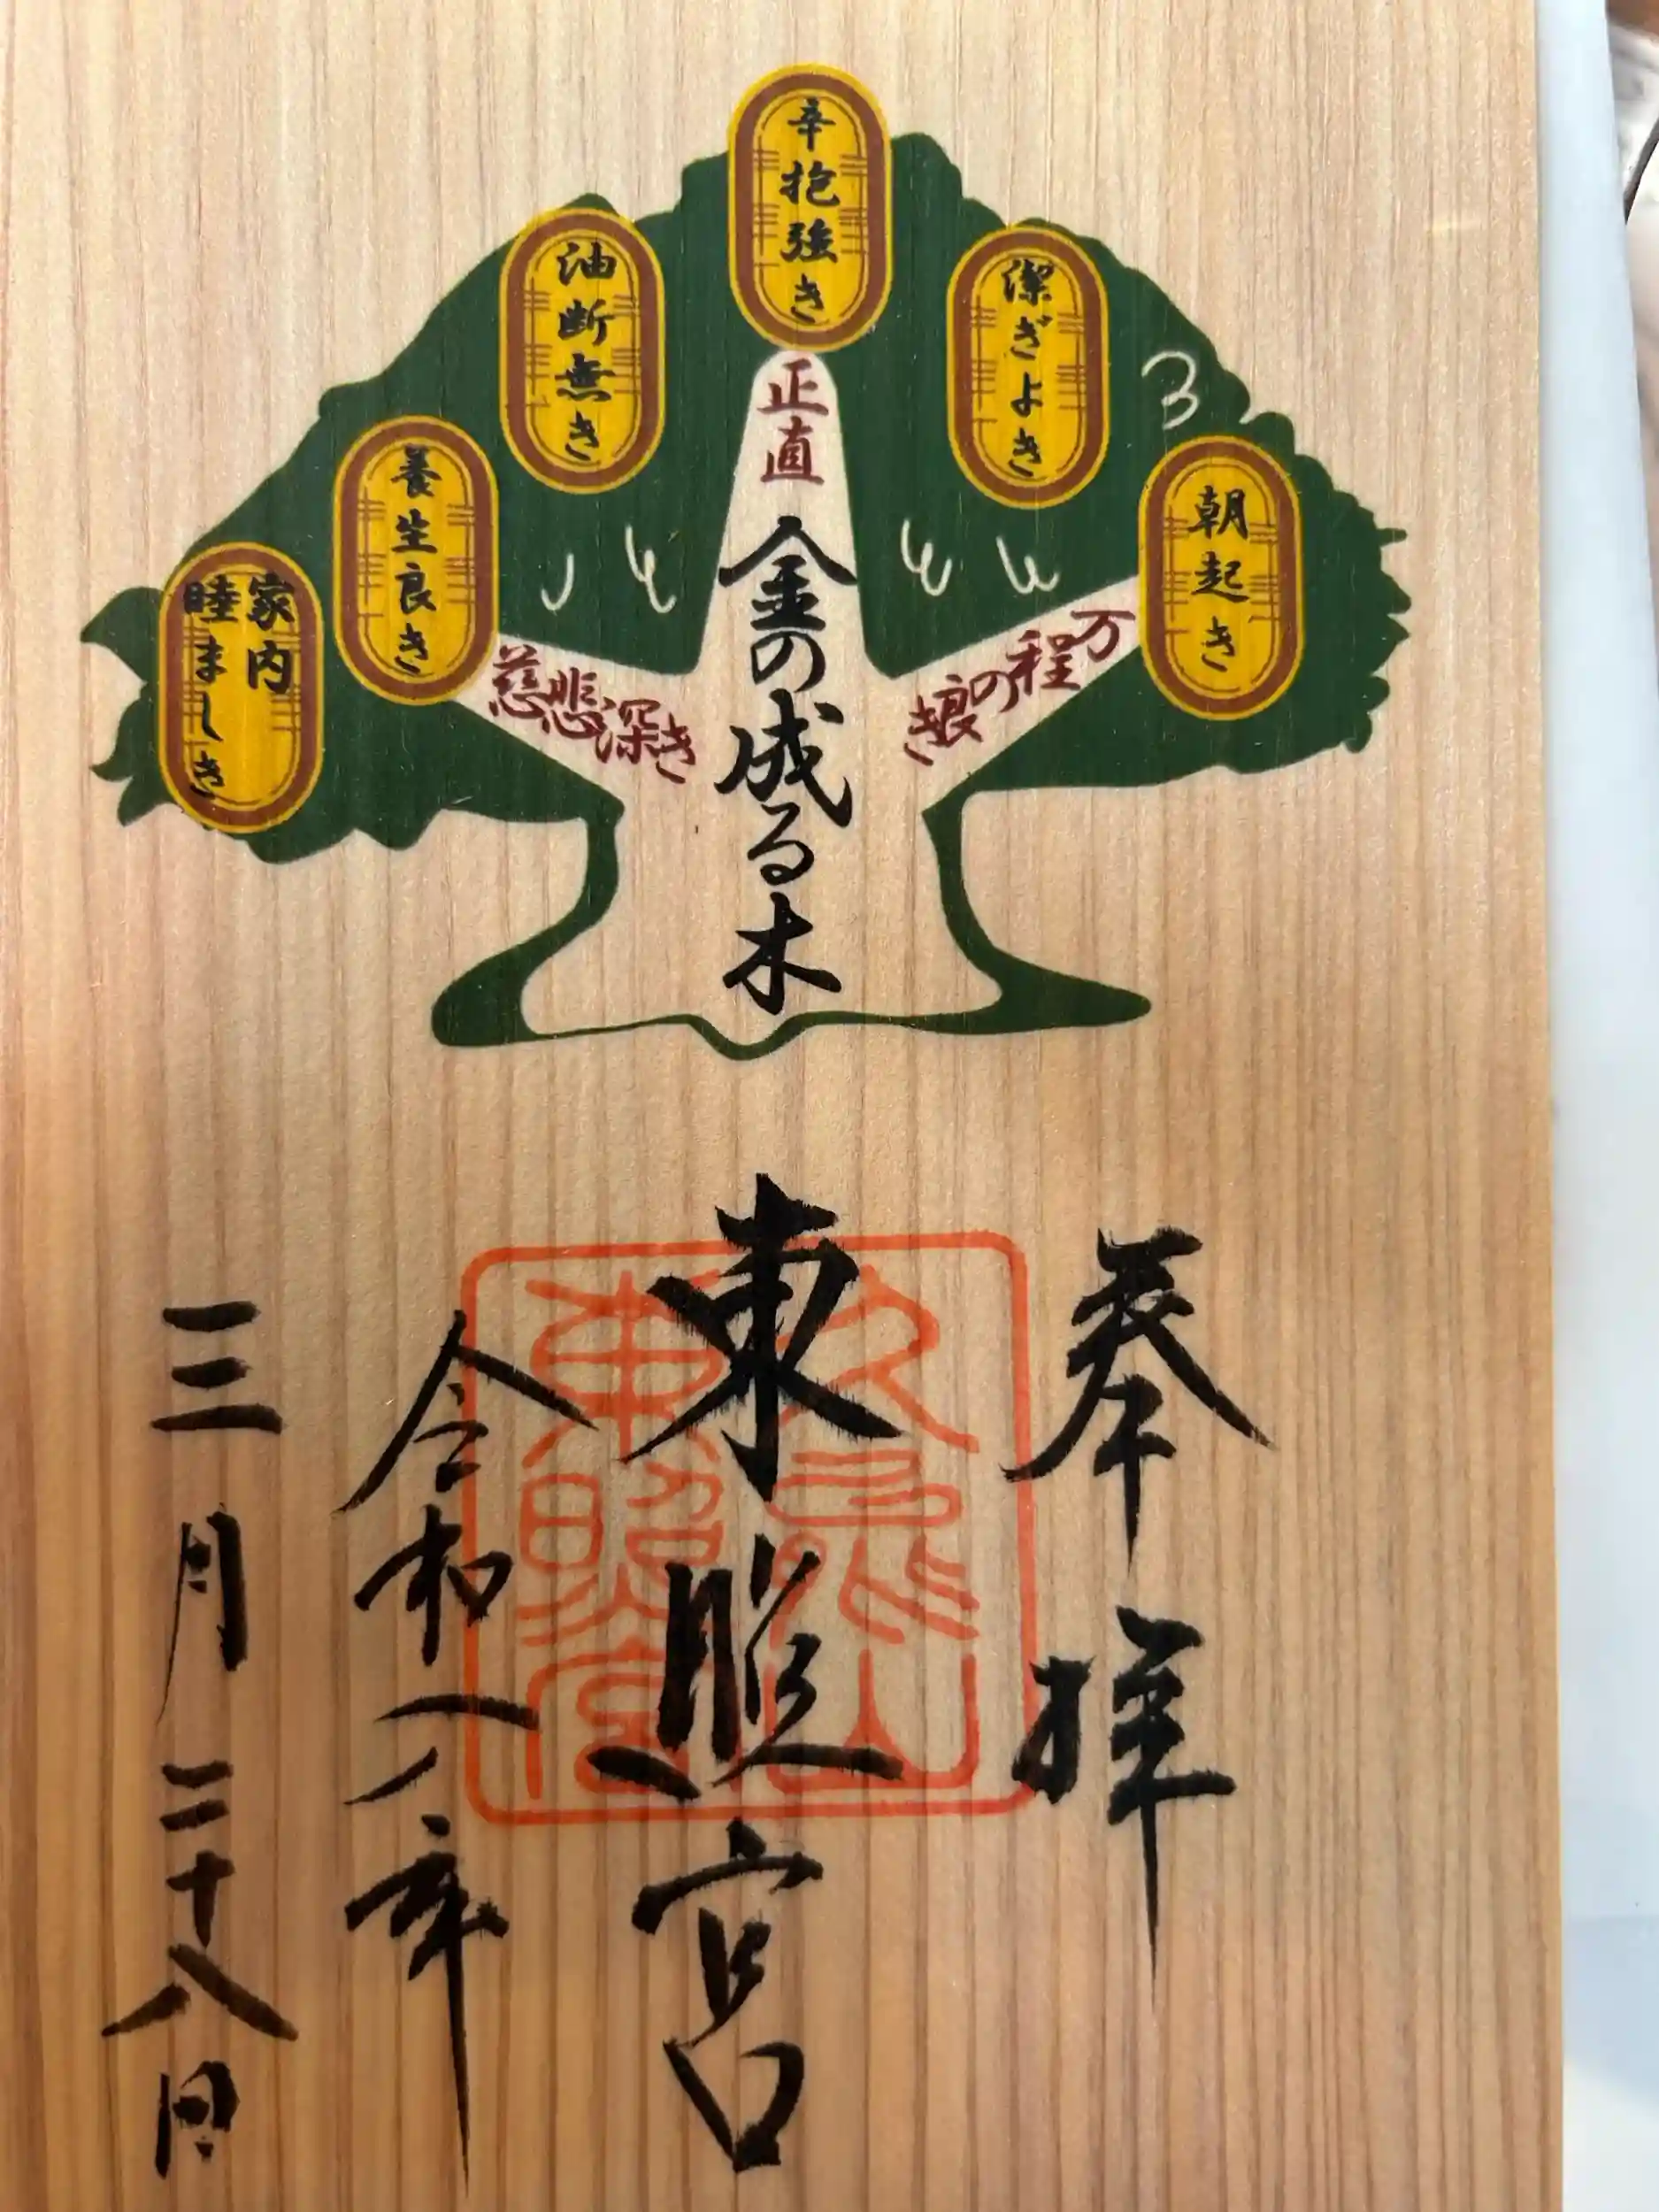 朝起き
潔ぎよき
辛抱強き
油断無き
養生良き
家内
睦ましき
万程の良き
正直
慈悲深き
金の成る木
奉拝
東照宮
久能山
東照宮
令和八年
三月二十八日